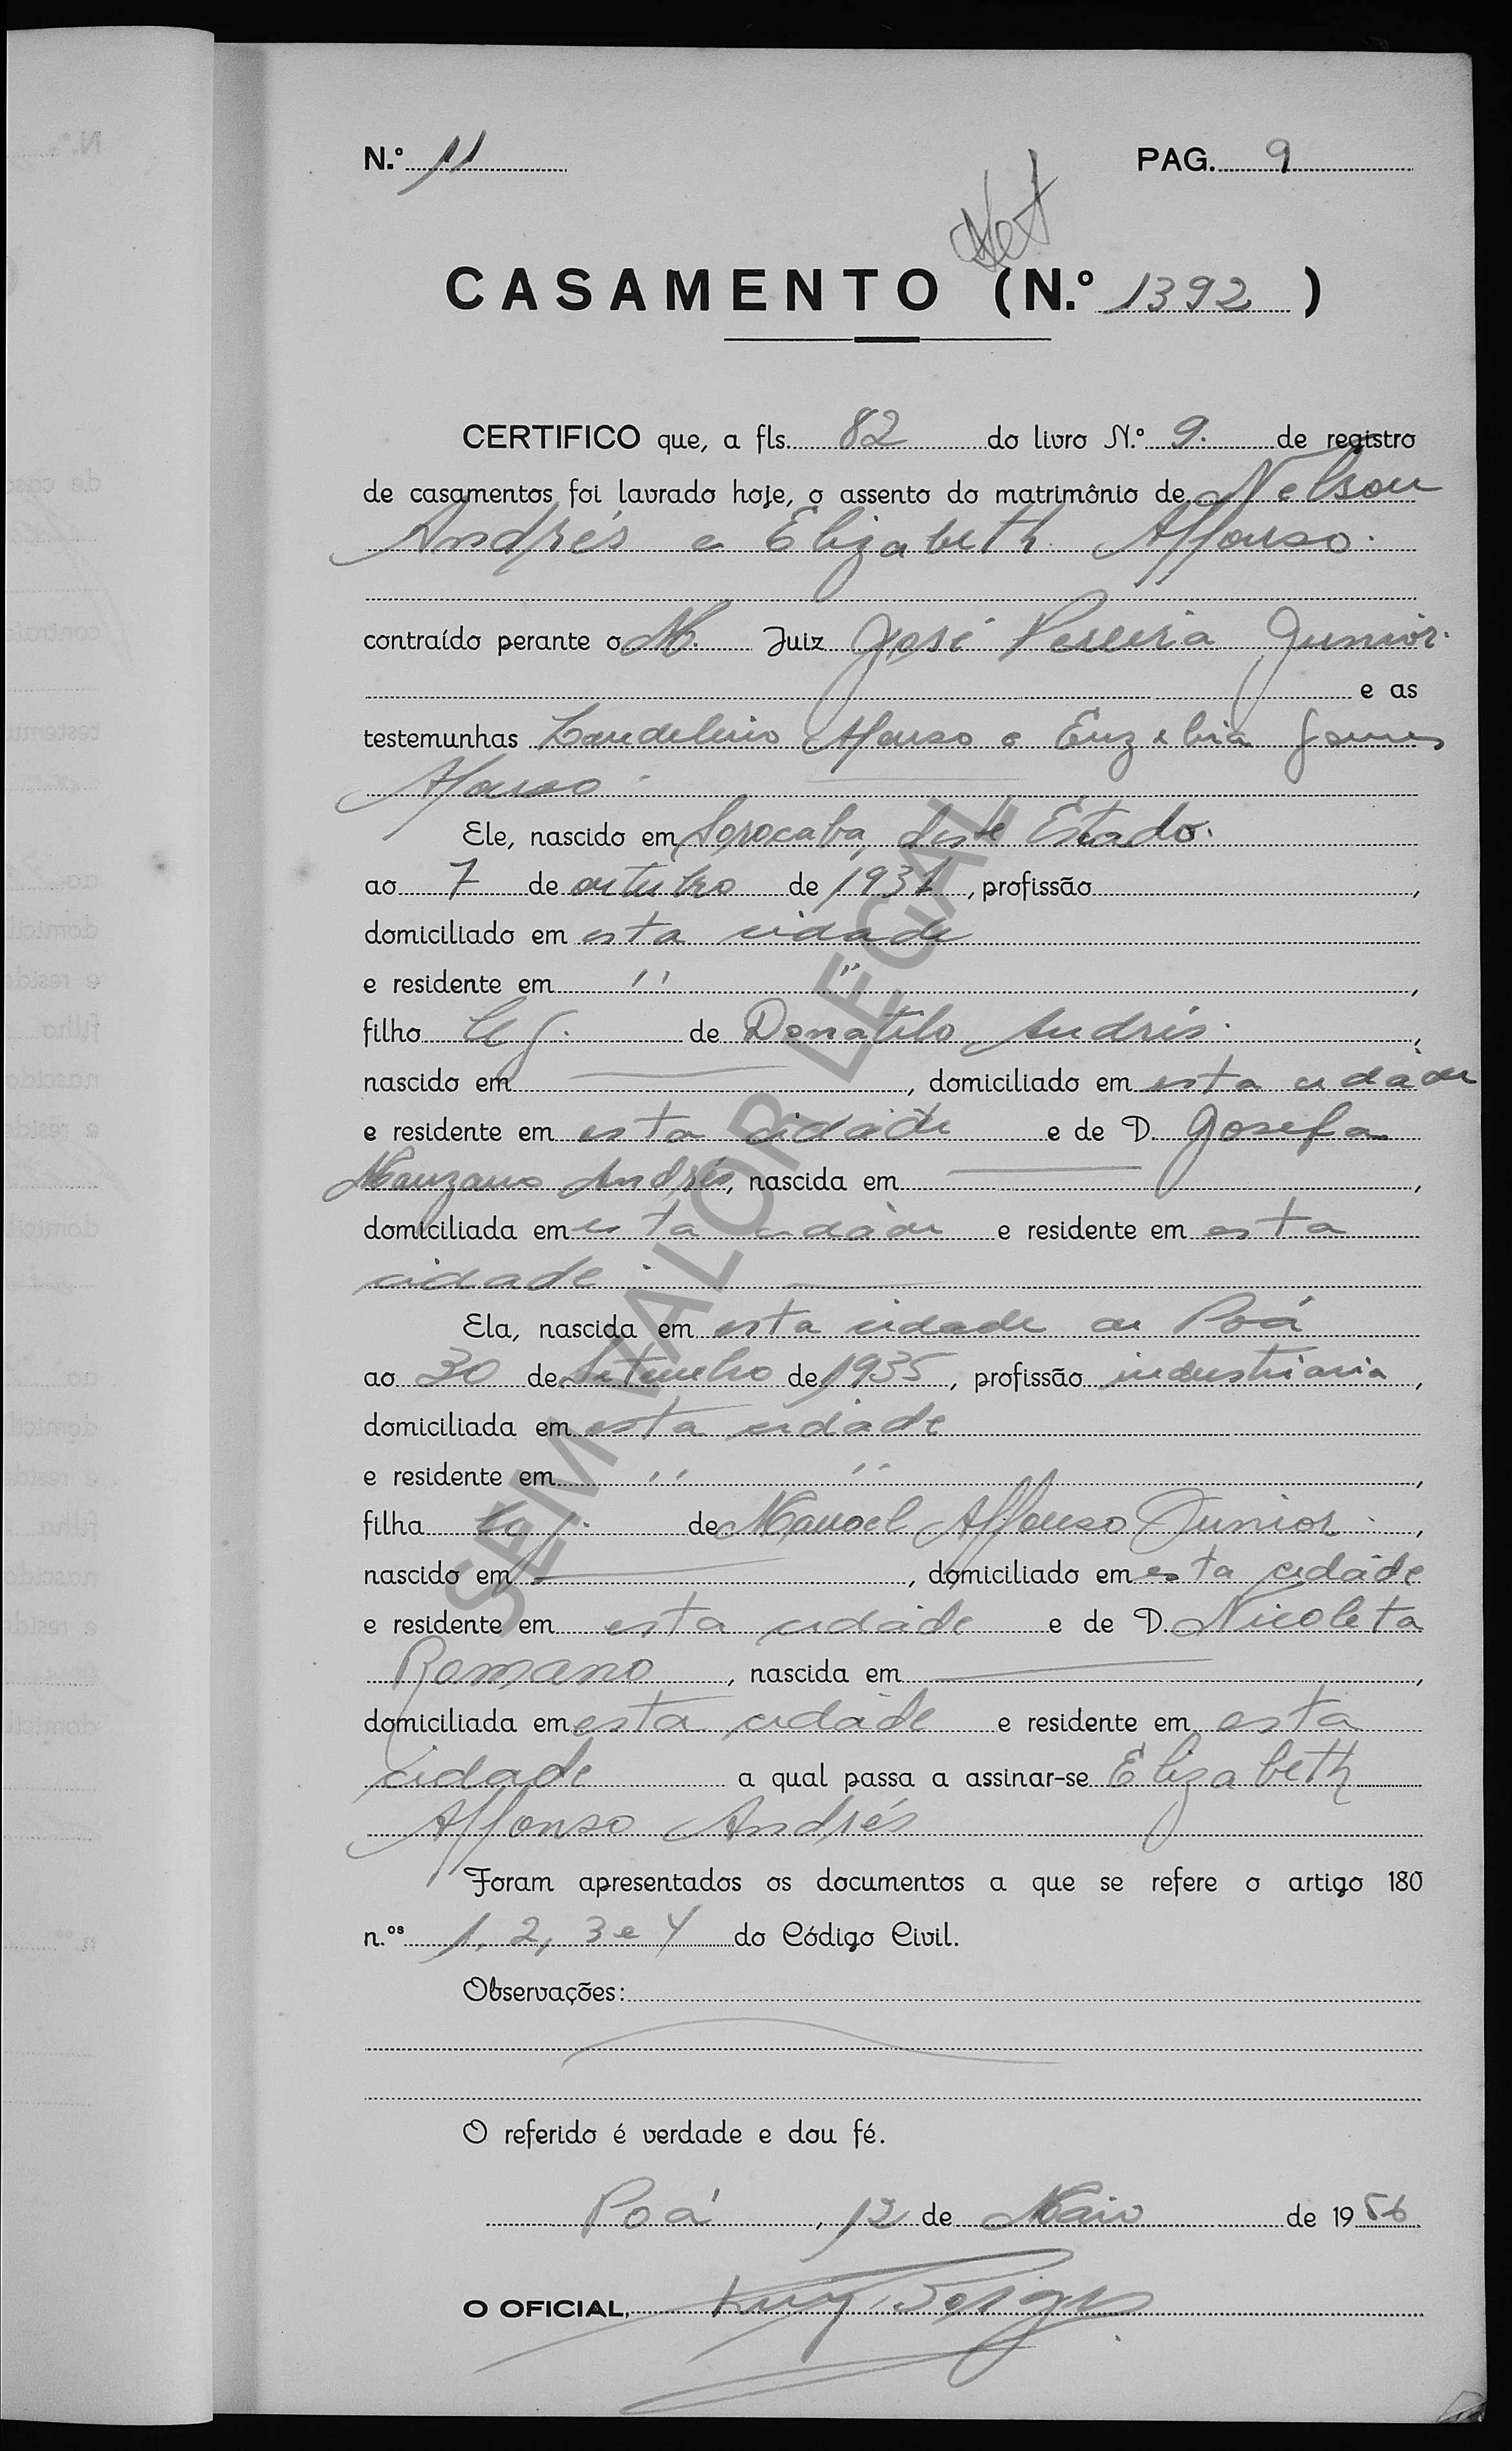 N.º 11 PAG. 9
CASAMENTO (N.º 1392)
CERTIFICO que, a fls. 82 do livro N.º 9. de registro
de casamentos, foi lavrado hoje, o assento do matrimônio de Nelson
Andrés e Elizabeth Affonso.
contraído perante o M. Juiz José Pereira Junior.
e as
testemunhas Laudelino Afonso e Euzebia Gomes
Afonso
Ele, nascido em Sorocaba, deste Estado.
ao 7 de outubro de 1931, profissão ,
domiciliado em esta cidade
e residente em " " ,
filho leg. de Donatilo Andrés. ,
nascido em , domiciliado em esta cidade
e residente em esta cidade e de D. Josefa
Manzano Andrés, nascida em ,
domiciliada em esta cidade e residente em esta
cidade.
Ela, nascida em esta cidade de Poá
ao 30 de Setembro de 1935, profissão industriaria,
domiciliada em esta cidade
e residente em " " ,
filha leg. de Manoel Affonso Junior. ,
nascido em , domiciliado em esta cidade
e residente em esta cidade e de D. Nicoleta
Romano, nascida em ,
domiciliada em esta cidade e residente em esta
cidade a qual passa a assinar-se Elizabeth
Affonso Andrés
Foram apresentados os documentos a que se refere o artigo 180
n.ºs 1, 2, 3 e 4 do Código Civil.
Observações:
O referido é verdade e dou fé.
Poá, 12 de Maio de 1956
O OFICIAL,
SEM VALOR LEGAL